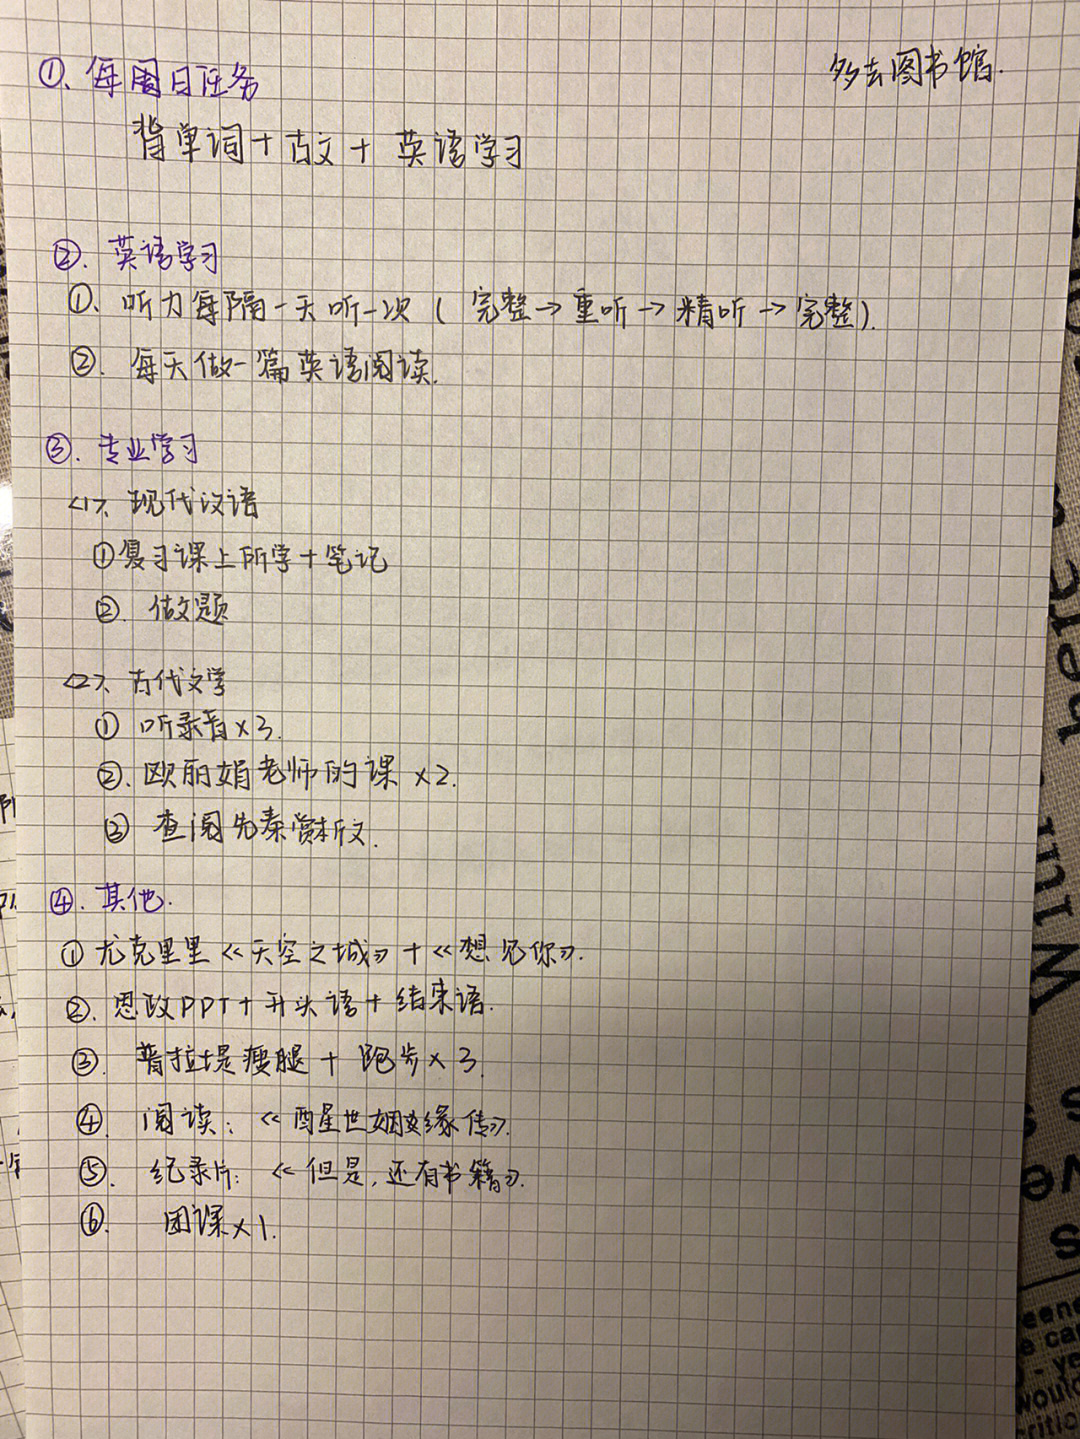 多去图书馆.
①、每周日任务
背单词+古文+英语学习
②. 英语学习
①、听力每隔一天听一次(完整→重听→精听→完整).
②. 每天做一篇英语阅读.
③. 专业学习
<1>、现代汉语
①复习课上所学+笔记
②. 做题
<2>、古代文学
① 听录音×3.
②. 欧丽娟老师的课×2.
③ 查阅先秦赏析文.
④. 其他.
① 尤克里里《天空之城》+《想见你》.
②. 思政PPT+开头语+结束语.
③. 普拉提瘦腿+跑步×3.
④. 阅读:《醒世姻缘传》.
⑤. 纪录片:《但是,还有书籍》.
⑥. 团课×1.
Mum
ever
would
critic